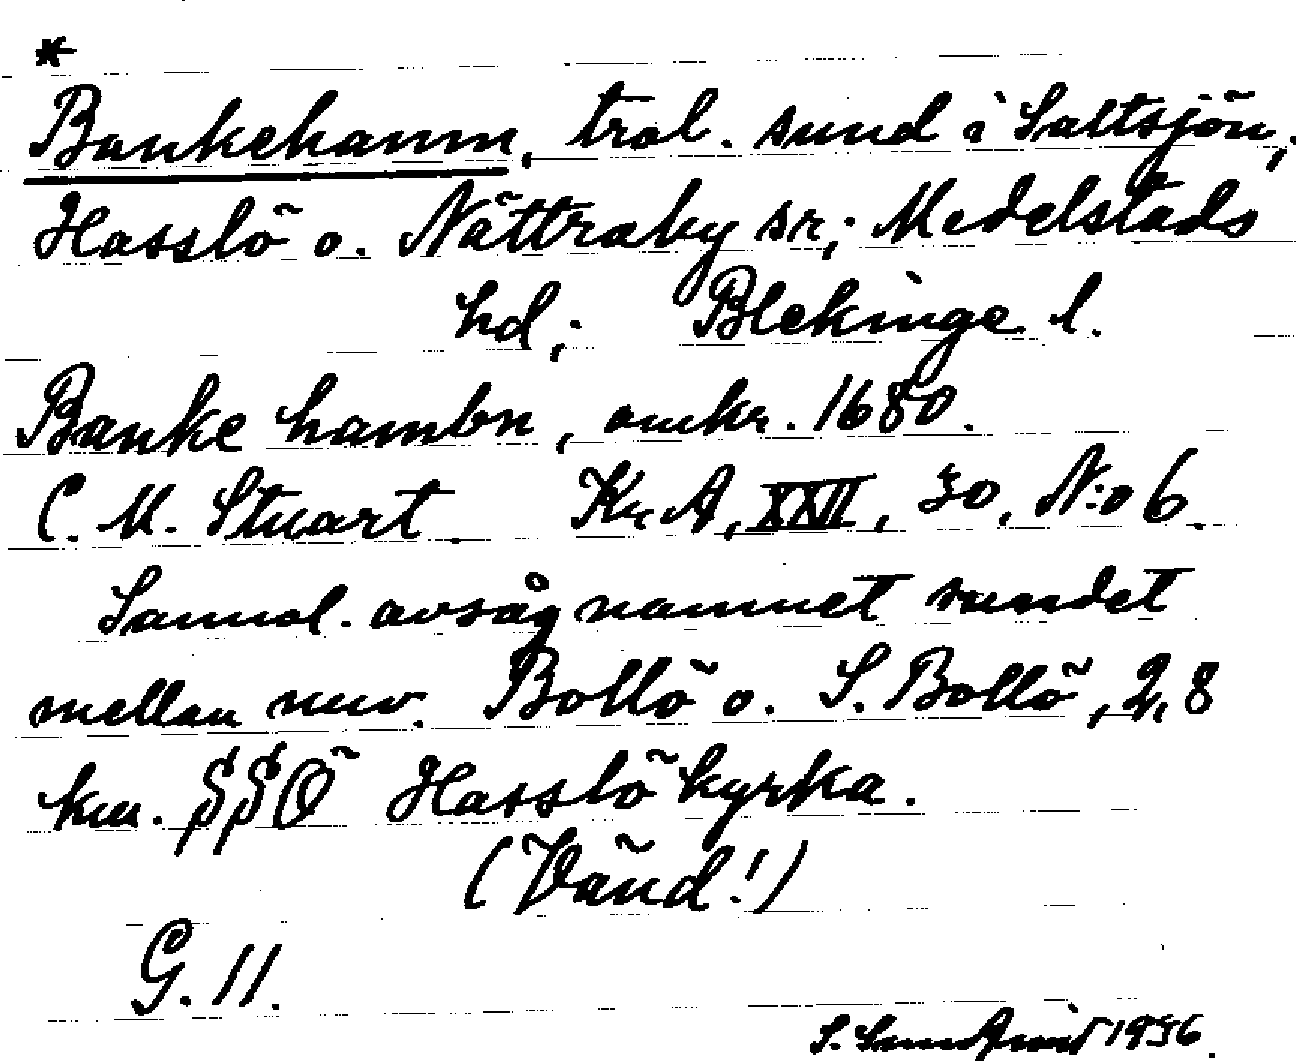 *
Bankehamn, trol. sund i Saltsjön,
Hasslö o. Nättraby sr; Medelstads
hd; Blekinge l.
Banke hambn, omkr. 1680.
C. M. Stuart Kr A, XXII, 30, N:o 6.
Sannol. avsåg namnet sundet
mellan nuv. Bollö o. S. Bollö, 2,8
km. SSÖ Hasslö kyrka.
(Vänd!)
G. 11.
1936.